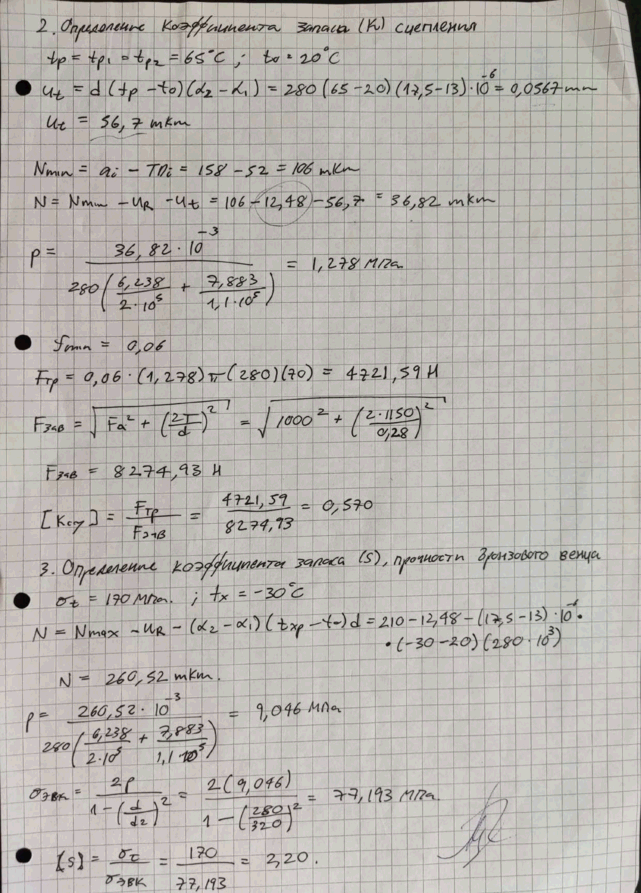 2. Определение коэффициента запаса (K) сцепления
tp = tp1 = tp2 = 65°C ; t0 = 20°C
ut = d (tp - t0) (α2 - α1) = 280 (65-20) (17,5-13)·10^-6 = 0,0567 mm
ut = 56,7 мкм
Nmin = ai - TDi = 158 - 52 = 106 мкм
N = Nmin - uR - ut = 106 - 12,48 - 56,7 = 36,82 мкм
p = 36,82·10^-3 / 280 (6,238 / 2·10^5 + 7,883 / 1,1·10^5) = 1,278 МПа
fmin = 0,06
Fтр = 0,06·(1,278) π (280) (70) = 4721,59 Н
Fзав = √(Fa² + (2T/d)²) = √(1000² + (2·1150 / 0,28)²)
Fзав = 8274,93 Н
[Kсц] = Fтр / Fзав = 4721,59 / 8274,93 = 0,570
3. Определение коэффициента запаса (S), прочности бронзового венца
σt = 170 МПа. ; tx = -30°C
N = Nmax - uR - (α2 - α1) (txp - t0) d = 210 - 12,48 - (17,5-13)·10^-6 ·
· (-30-20) (280·10^3)
N = 260,52 мкм.
p = 260,52·10^-3 / 280 (6,238 / 2·10^5 + 7,883 / 1,1·10^5) = 9,046 МПа
σэвк = 2p / 1 - (d/d2)² = 2(9,046) / 1 - (280/320)² = 77,193 МПа.
[S] = σt / σэвк = 170 / 77,193 = 2,20.